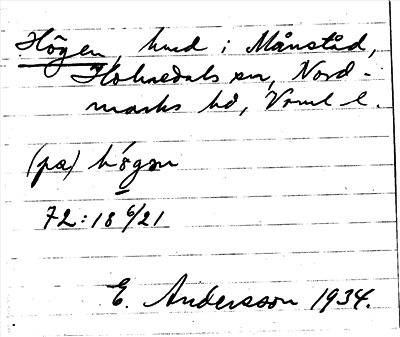 Högen, hmd i Månstad,
Holmedals sn, Nord-
marks hd, Vrml l.
(pa) högen
72:18 6/21
E. Andersson 1934.